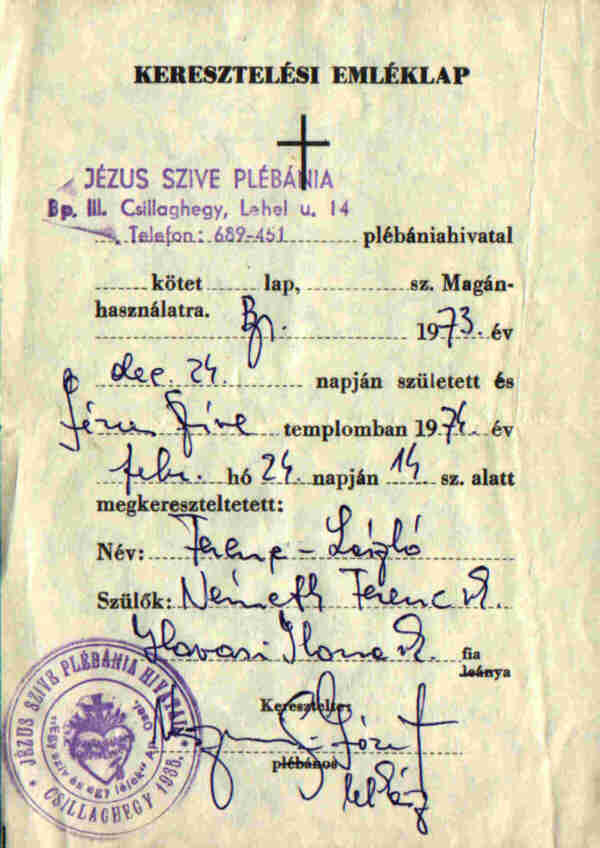 KERESZTELÉSI EMLÉKLAP
JÉZUS SZIVE PLÉBÁNIA
Bp. III. Csillaghegy, Lehel u. 14
Telefon: 689-451 plébániahivatal
kötet lap, sz. Magán-
használatra. Bp. 1973. év
dec. 24. napján született és
Jézus Szive templomban 1974. év
febr. hó 24. napján 14. sz. alatt
megkereszteltetett:
Név: Ferenc - László
Szülők: Németh Ferenc
Havasi Ilona fia
leánya
Keresztelte:
József
plébános
lelkész
JÉZUS SZIVE PLÉBÁNIA HIVATAL
"Egy sziv és egy lélek"
CSILLAGHEGY 1938.